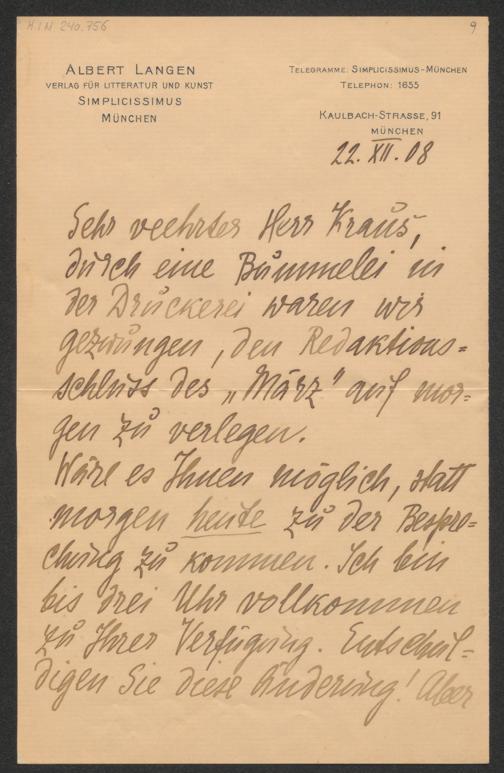 H.I.N. 240.756
9
ALBERT LANGEN
VERLAG FÜR LITTERATUR UND KUNST
SIMPLICISSIMUS
MÜNCHEN
TELEGRAMME: SIMPLICISSIMUS-MÜNCHEN
TELEPHON: 1655
KAULBACH-STRASSE, 91
MÜNCHEN
22. XII. 08
Sehr veehrter Herr Kraus,
durch eine Bummelei in
der Druckerei waren wir
gezwungen, den Redaktions=
schluss des „März" auf mor=
gen zu verlegen.
Wäre es Ihnen möglich, statt
morgen heute zu der Bespre=
chung zu kommen. Ich bin
bis drei Uhr vollkommen
zu Ihrer Verfügung. Entschul=
digen Sie diese Änderung! Aber